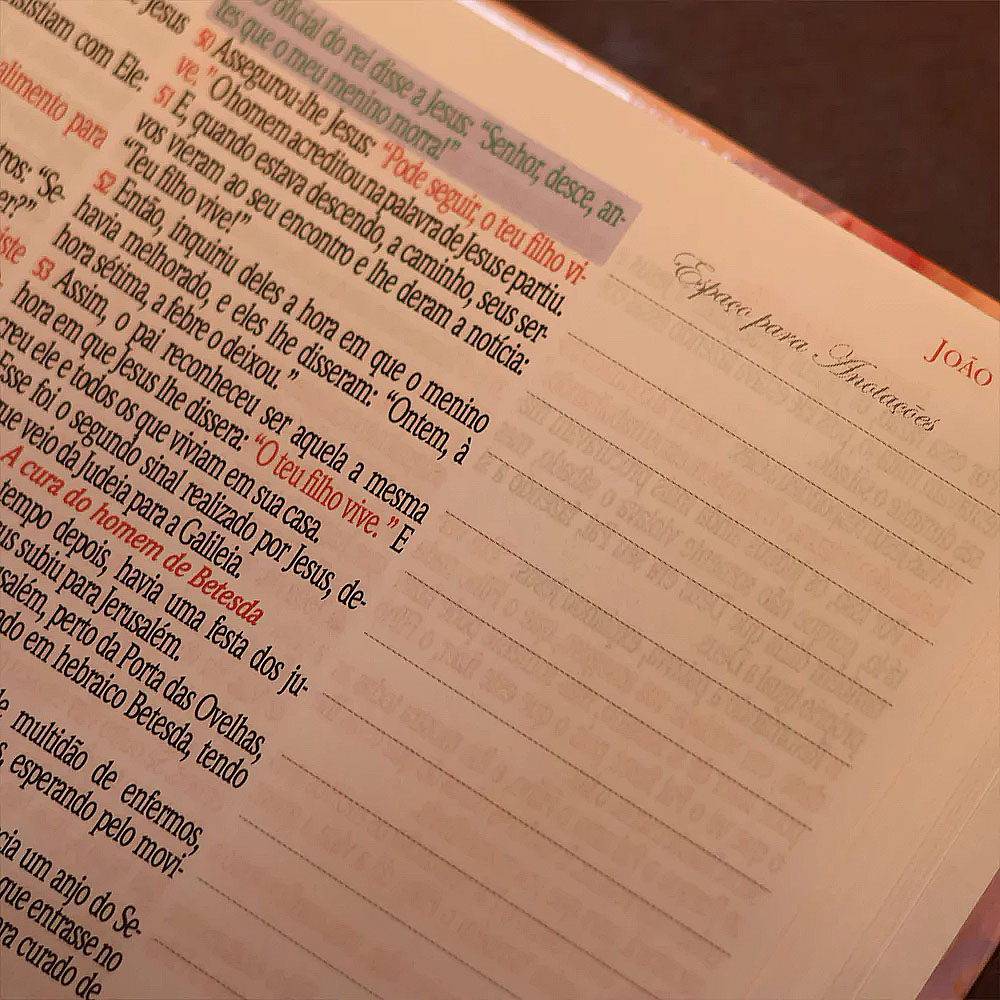 JOÃO
Jesus
sistiam com Ele:
alimento para
tros: "Se-
er?"
iste
oficial do rei disse a Jesus: "Senhor, desce, an-
tes que o meu menino morra!"
50 Assegurou-lhe Jesus: "Pode seguir, o teu filho vi-
ve." O homem acreditou na palavra de Jesus e partiu.
51 E, quando estava descendo, a caminho, seus ser-
vos vieram ao seu encontro e lhe deram a notícia:
"Teu filho vive!"
52 Então, inquiriu deles a hora em que o menino
havia melhorado, e eles lhe disseram: "Ontem, à
hora sétima, a febre o deixou."
53 Assim, o pai reconheceu ser aquela a mesma
hora em que Jesus lhe dissera: "O teu filho vive." E
creu ele e todos os que viviam em sua casa.
Esse foi o segundo sinal realizado por Jesus, de-
que veio da Judeia para a Galileia.
A cura do homem de Betesda
tempo depois, havia uma festa dos ju-
us subiu para Jerusalém.
salém, perto da Porta das Ovelhas,
ado em hebraico Betesda, tendo
e multidão de enfermos,
s, esperando pelo movi-
cia um anjo do Se-
que entrasse no
ara curado de
Espaço para Anotações